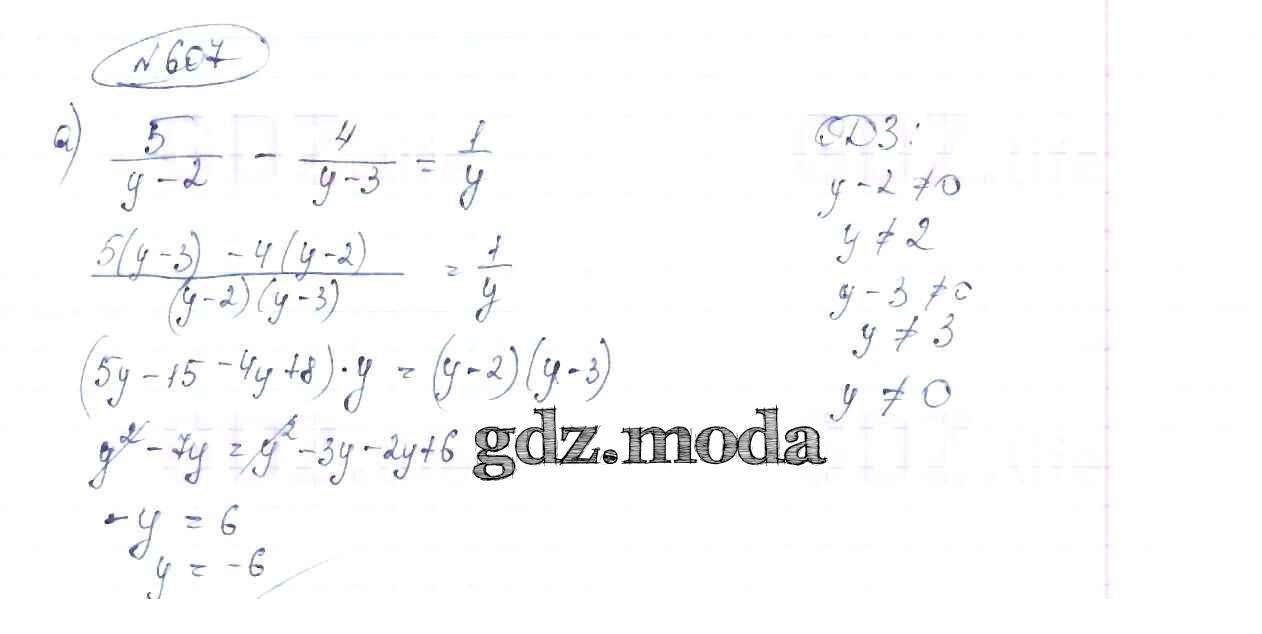 №607
а) 5/(y-2) - 4/(y-3) = 1/y
(5(y-3) - 4(y-2))/((y-2)(y-3)) = 1/y
(5y-15-4y+8)·y = (y-2)(y-3)
y²-7y = y²-3y-2y+6
-y = 6
y = -6
ОДЗ:
y-2≠0
y≠2
y-3≠0
y≠3
y≠0
gdz.moda